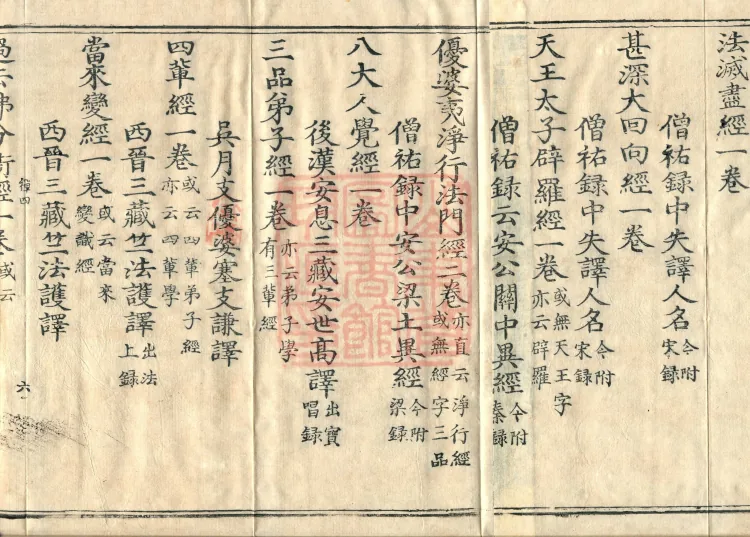 法滅盡經一卷
僧祐録中失譯人名今附宋録
甚深大回向經一卷
僧祐録中失譯人名今附宋録
天王太子辟羅經一卷或無天王字亦云辟羅
僧祐録云安公關中異經今附秦録
優婆夷淨行法門經二卷亦直云淨行經或無經字三品
僧祐録中安公梁土異經今附梁録
八大人覺經一卷
後漢安息三藏安世高譯出寶唱録
三品弟子經一卷亦云弟子學有三輩經
吳月支優婆塞支謙譯
四輩經一卷或云四輩弟子經亦云四輩學
西晉三藏竺法護譯出法上録
當來變經一卷或云當來變識經
西晉三藏竺法護譯
六